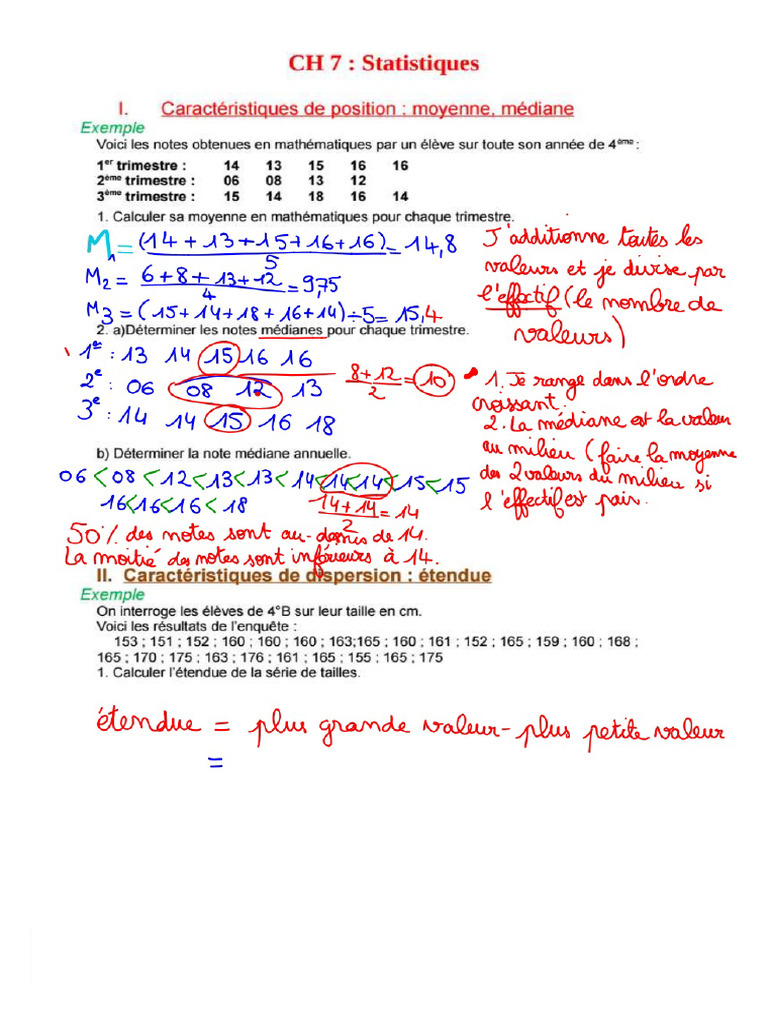 CH 7 : Statistiques
I. Caractéristiques de position : moyenne, médiane
Exemple
Voici les notes obtenues en mathématiques par un élève sur toute son année de 4ème :
1er trimestre : 14 13 15 16 16
2ème trimestre : 06 08 13 12
3ème trimestre : 15 14 18 16 14
1. Calculer sa moyenne en mathématiques pour chaque trimestre.
M1 = (14 + 13 + 15 + 16 + 16) / 5 = 14,8
M2 = 6 + 8 + 13 + 12 / 4 = 9,75
M3 = (15 + 14 + 18 + 16 + 14) ÷ 5 = 15,4
J'additionne toutes les
valeurs et je divise par
l'effectif (le nombre de
valeurs)
2. a)Déterminer les notes médianes pour chaque trimestre.
1e : 13 14 15 16 16
2e : 06 08 12 13
8 + 12 / 2 = 10
3e : 14 14 15 16 18
1. Je range dans l'ordre
croissant.
2. La médiane est la valeur
au milieu (faire la moyenne
des 2 valeurs du milieu si
l'effectif est pair.
b) Déterminer la note médiane annuelle.
06 < 08 < 12 < 13 < 13 < 14 < 14 < 14 < 15 < 15
16 < 16 < 16 < 18
14 + 14 / 2 = 14
50% des notes sont au-dessus de 14.
La moitié des notes sont inférieurs à 14.
II. Caractéristiques de dispersion : étendue
Exemple
On interroge les élèves de 4°B sur leur taille en cm.
Voici les résultats de l'enquête :
153 ; 151 ; 152 ; 160 ; 160 ; 160 ; 163;165 ; 160 ; 161 ; 152 ; 165 ; 159 ; 160 ; 168 ;
165 ; 170 ; 175 ; 163 ; 176 ; 161 ; 165 ; 155 ; 165 ; 175
1. Calculer l'étendue de la série de tailles.
étendue = plus grande valeur - plus petite valeur
=